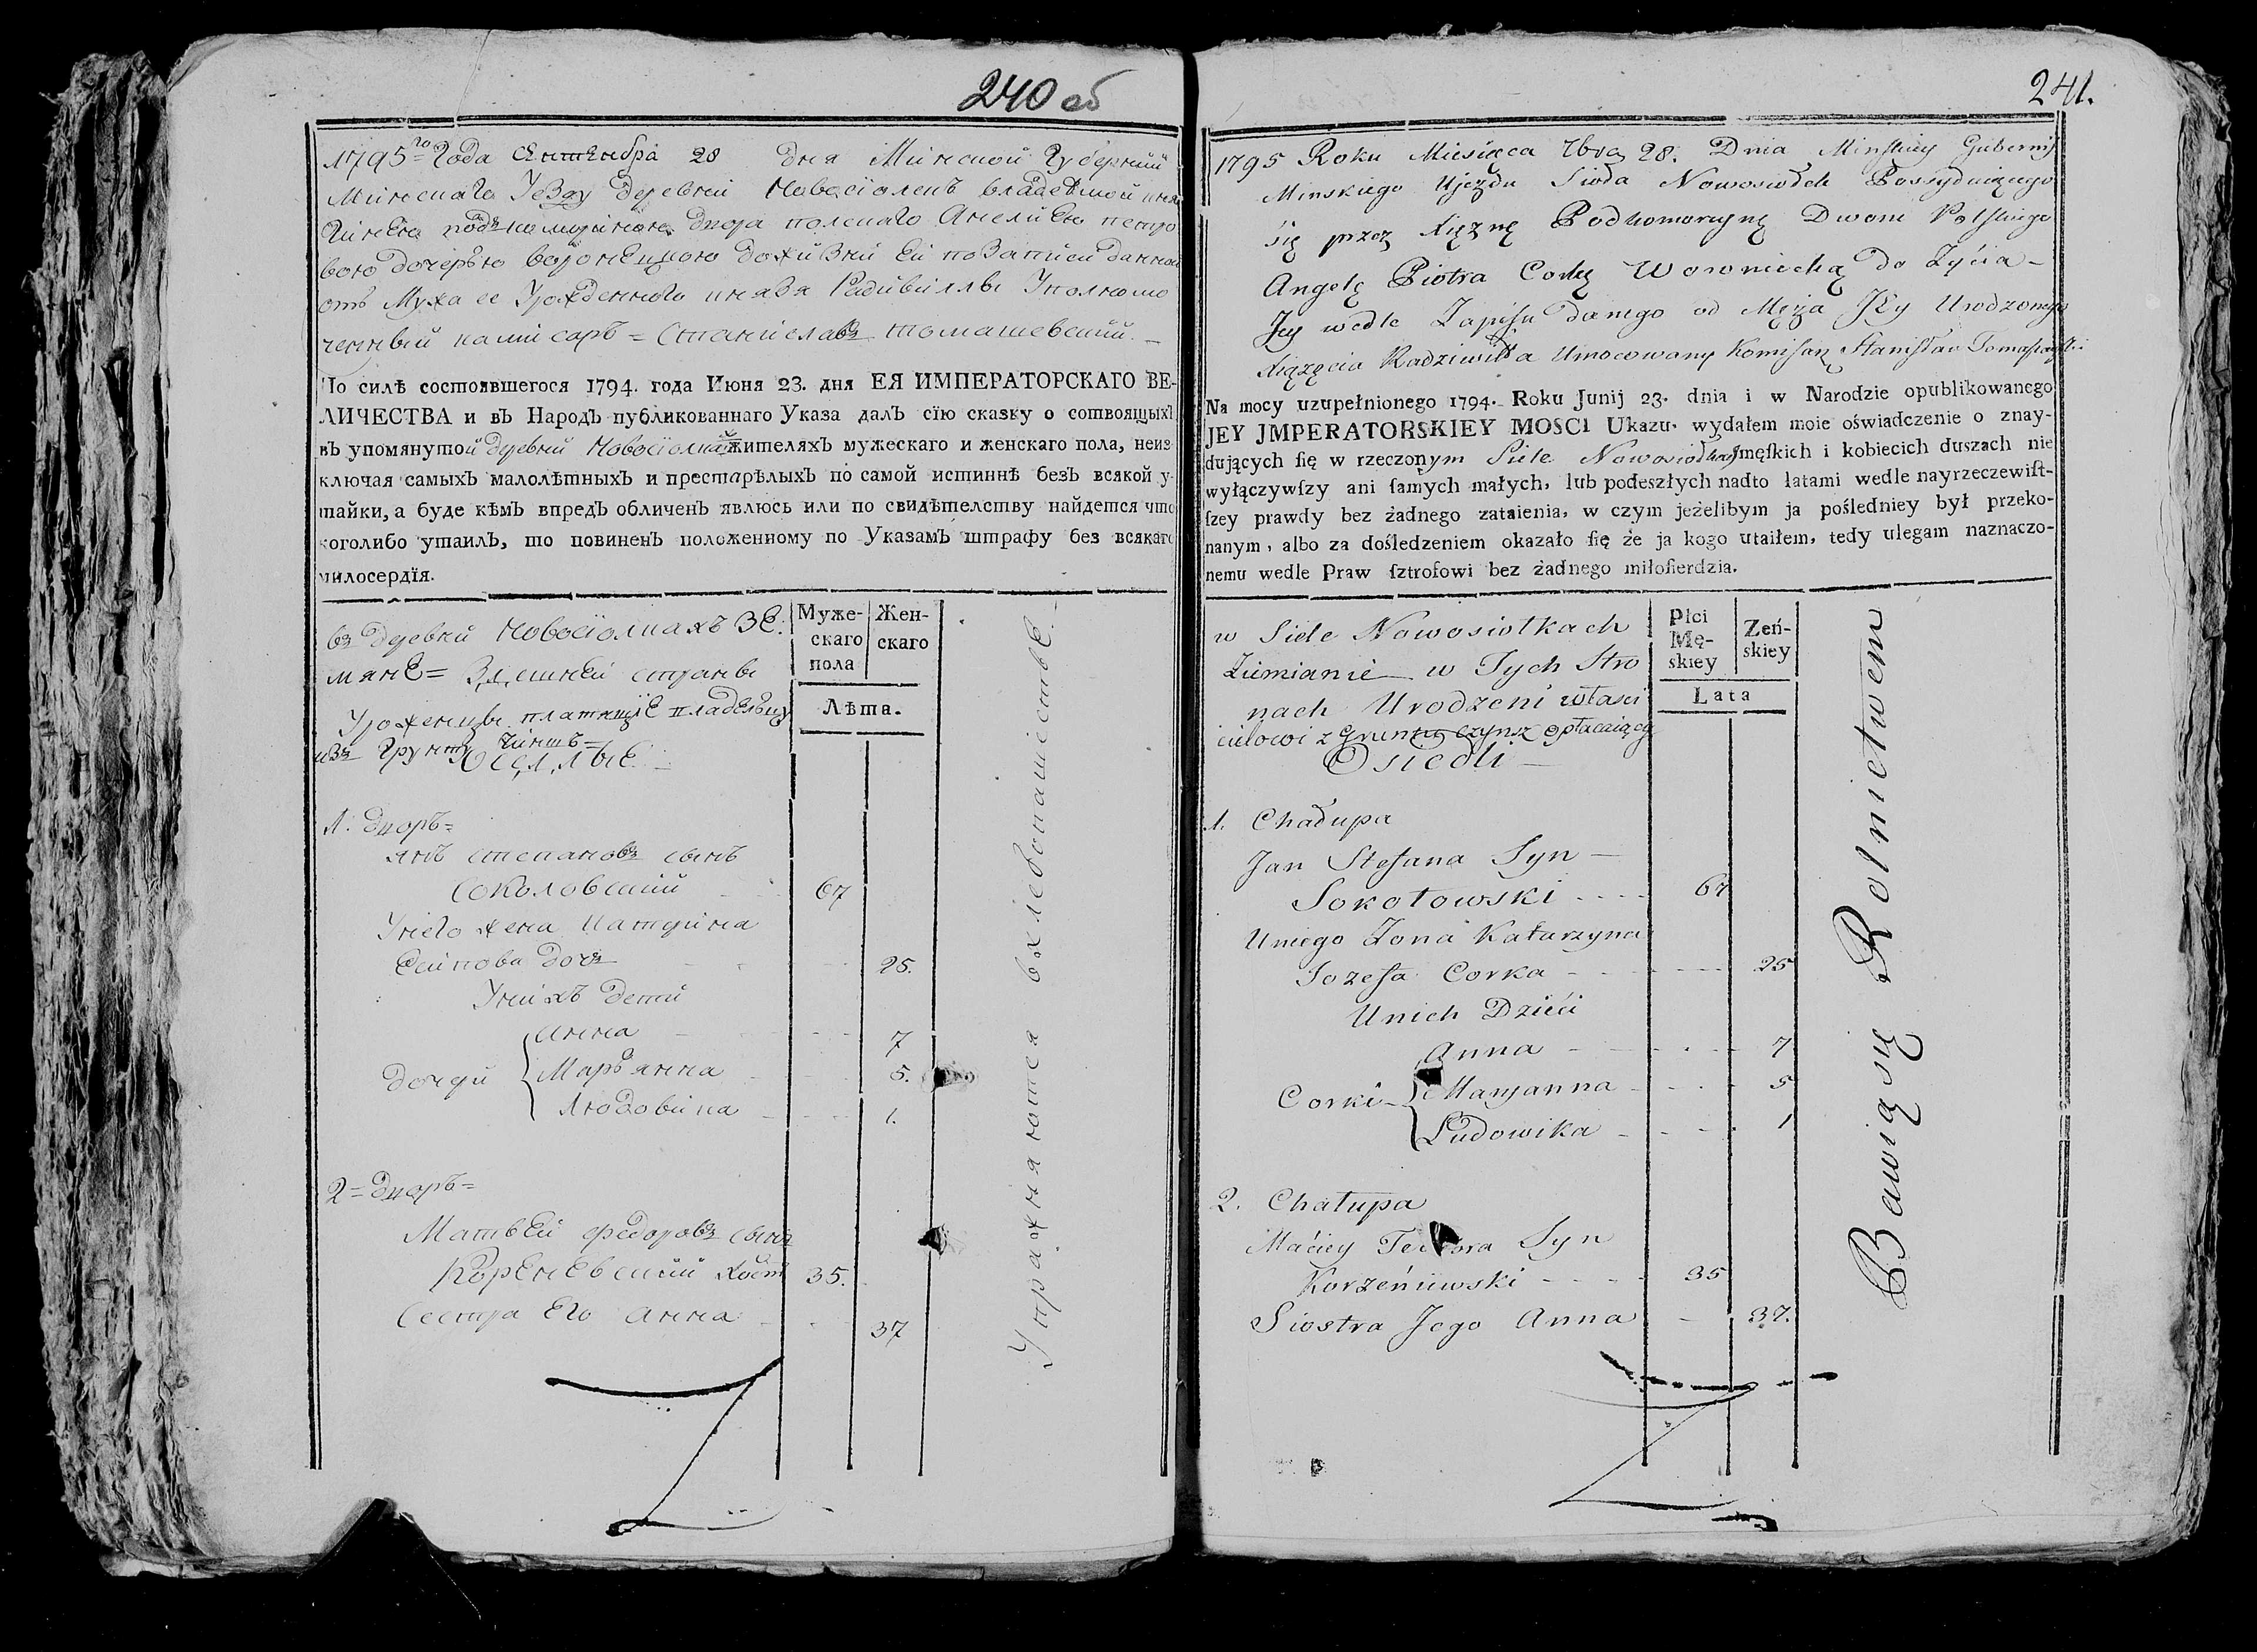 240 об
1795го Года Сентября 28 дня Минской Губерний
Минскаго Уезду деревни Новосіолекъ владеемой кня
гинею подъкоморіною двора полскаго Анелиею петро
вою дочерью воронецкою доживзни Ей по Записи данной
отъ Мужа ее Урожденнаго князя Радивиллы Уполномо
ченный камисаръ = Станиславъ томашевский. –
По силѣ состоявшегося 1794. года Июня 23. дня ЕЯ ИМПЕРАТОРСКАГО ВЕ-
ЛИЧЕСТВА и въ Народъ публикованнаго Указа далъ сїю сказку о сотвоящыхъ
въ упомянутой деревни Новосіолкахъ жителяхъ мужескаго и женскаго пола, неиз-
ключая самыхъ малолѣтныхъ и престарѣлыхъ по самой истиннѣ безъ всякой у-
тайки, а буде кѣмъ впредъ обличенъ явлюсь или по свидѣтелству найдется что
коголибо утаилъ, то повиненъ положенному по Указамъ штрафу без всякаго
милосердїя.
въ деревни Новосіолкахъ ЗЕ:
мянЕ = Здешней страны
Уроженцы платящіЕ владельцу
изъ Грунту Чиншъ =
Оселлые
Муже-
скаго
пола
Жен-
скаго
Лѣта.
1. дворъ =
янъ степановъ сынъ
Соколовский 67
Унего жена Катерина
Есипова дочь 25.
Унихъ дети
дочери
Анна 7
Марьянна 5.
Людовика 1.
2 = дворъ =
Матвей федоровъ сынъ
КоренЕвский холст 35.
Сестра Его Анна 37
Упражняются вхлебопашестве
241.
1795 Roku Miesiąca 7bra 28. Dnia Minskiey Gubernij
Minskiego Ujezdu Sioła Nowosiołek Possyduiącego
się przez Xiężnę Podkomorzynę Dworu Polskiego
Angelę Piotra Corkę Woroniecką do Życia –
Jey wedle Zapisu danego od Męża Jey Urodzonego
Xiążęcia Radziwiłła Umocowany Komisarz Stanisław Tomaszewski
Na mocy uzupełnionego 1794. Roku Junij 23. dnia i w Narodzie opublikowanego
JEY JMPERATORSKIEY MOSCI Ukazu. wydałem moie oświadczenie o znay-
dujących ſię w rzeczonym Siele Nowosiołkach męſkich i kobiecich duszach nie
wyłączywſzy ani ſamych małych, lub podeszłych nadto latami wedle nayrzeczewiſt-
ſzey prawdy bez żadnego zataienia, w czym jeżelibym ja pośledniey był przeko-
nanym, albo za dośledzeniem okazało ſię że ja kogo utaiłem, tedy ulegam naznaczo-
nemu wedle Praw ſztrofowi bez żadnego miłoſierdzia.
w Siele Nowosiołkach
Ziemianie w Tych Stro
nach Urodzeni właści
cielowi z Gruntu czynsz opłacaiący
Osiedli –
Płci
Mę-
skiey
Zeń-
skiey
Lata
1. Chałupa
Jan Stefana Syn –
Sokołowski 67
Uniego Żona Katarzyna
Jozefa Corka 25
Unich Dzieci
Corki
Anna 7
Maryanna 5
Ludowika 1
2. Chałupa
Maciey Teodora Syn
Korzeniewski 35
Siostra Jego Anna 37.
Bawią się Rolnictwem